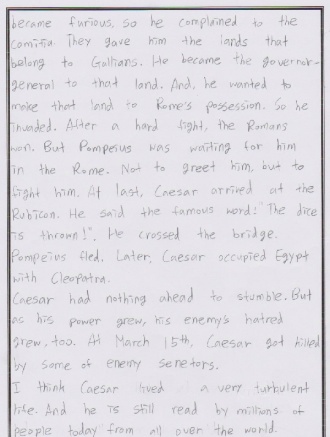 became furious, so he complained to the
comitia. They gave him the lands that
belong to Gallians. He became the governor-
general to that land. And, he wanted to
make that land to Rome's possession. So he
invaded. After a hard fight, the Romans
won. But Pompeius was waiting for him
in the Rome. Not to greet him, but to
fight him. At last, Caesar arrived at the
Rubicon. He said the famous word! "The dice
is thrown!". He crossed the bridge.
Pompeius fled. Later, Caesar occupied Egypt
with Cleopatra.
Caesar had nothing ahead to stumble. But
as his power grew, his enemy's hatred
grew, too. At March 15th, Caesar got killed
by some of enemy senetors.
I think Caesar lived a very turbulent
life. And he is still read by millions of
people today from all over the world.